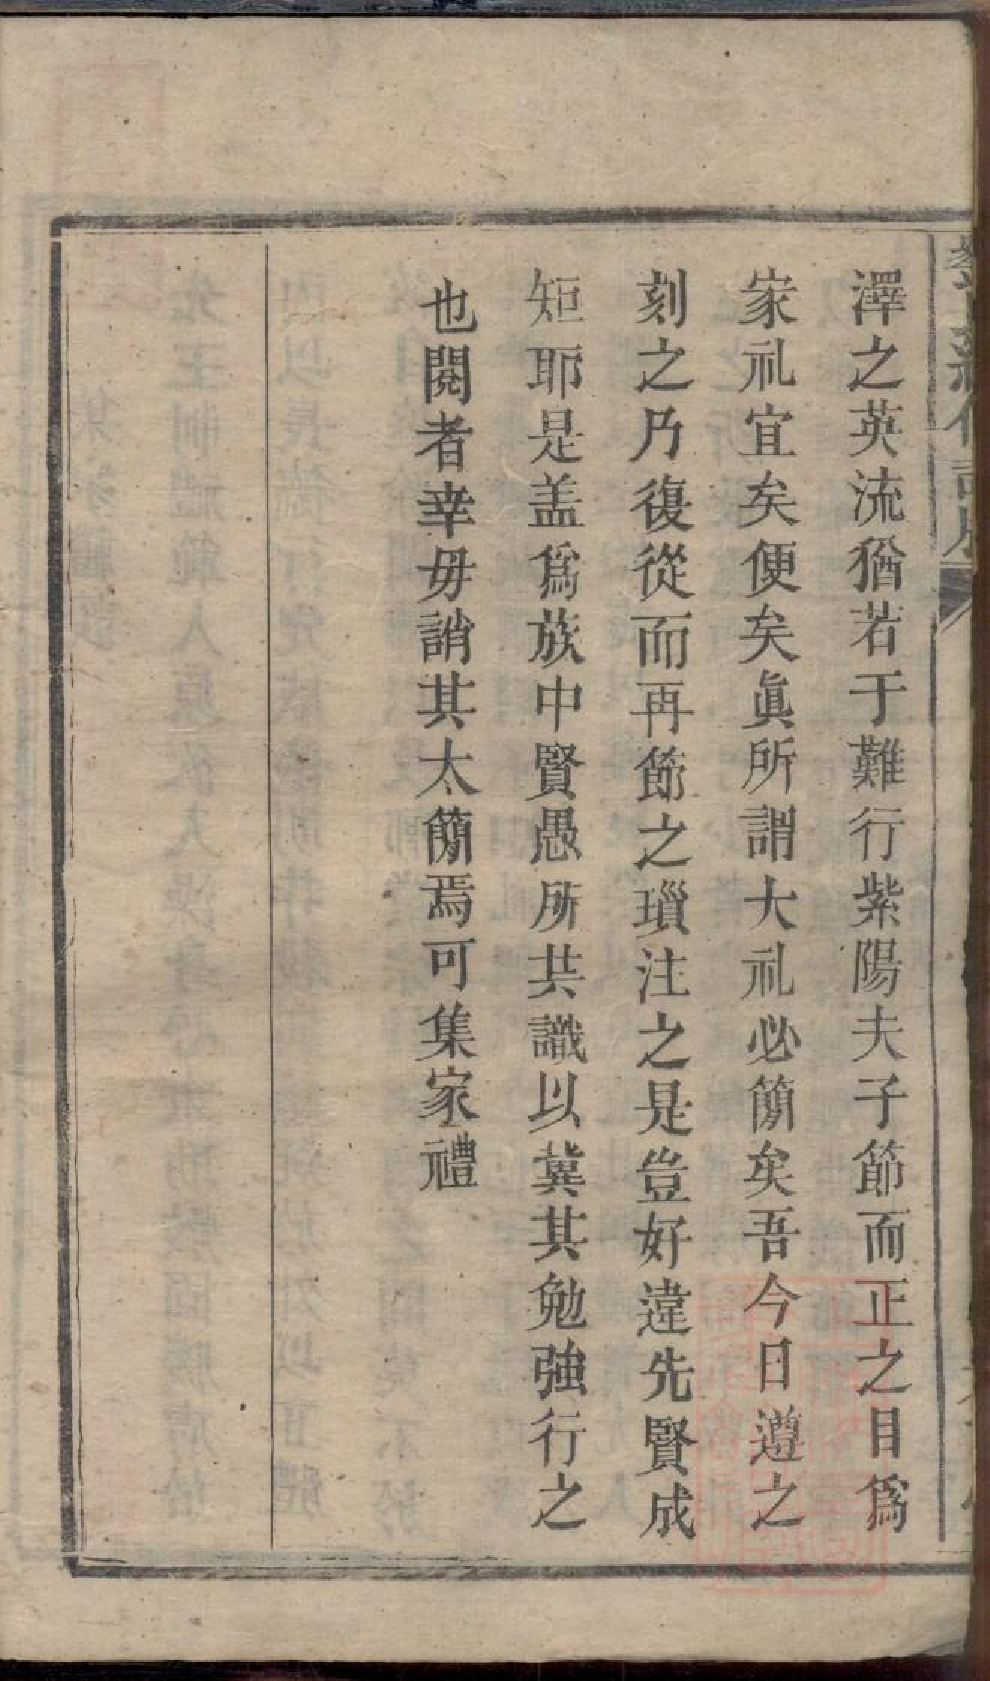 澤之英流猶若于難行紫陽夫子節而正之目爲
家礼宜矣便矣眞所謂大礼必簡矣吾今日遵之
刻之乃復從而再節之瑣注之是豈好違先賢成
矩耶是盖爲族中賢愚所共識以冀其勉強行之
也閱者幸毋誚其太簡焉可集家禮